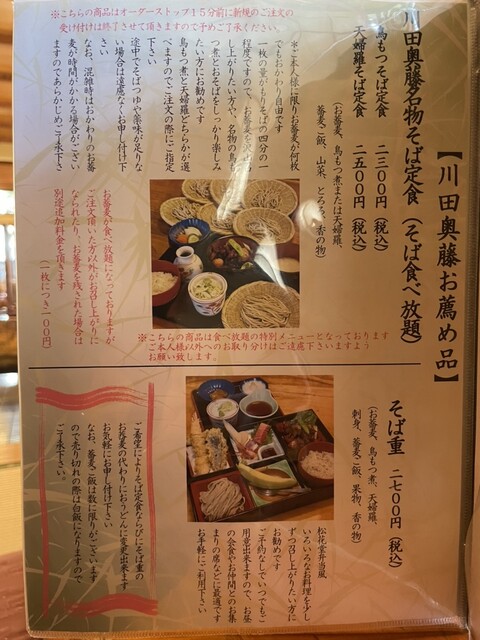 【川田奥藤お薦め品】
川田奥藤名物そば定食（そば食べ放題）
鳥もつそば定食　二三〇〇円（税込）
天婦羅そば定食　二五〇〇円（税込）
（お蕎麦、鳥もつ煮または天婦羅、
蕎麦ご飯、山菜、とろろ、香の物）
＊ご本人様に限りお蕎麦が何枚
でもおかわり自由です
一枚の量がもりそばの四分の一
程度ですので、お蕎麦を沢山召
し上がりたい方や、名物の鳥も
つ煮とおそばをしっかり楽しみ
たい方にお勧めです
鳥もつ煮と天婦羅どちらかが選
べますのでご注文の際にご指定
下さい
途中でそばつゆや薬味が足りな
い場合は遠慮なくお申し付け下
さい
なお、混雑時はおかわりのお蕎
麦が時間がかかる場合がござい
ますのであらかじめご了承下さい
※こちらの商品はオーダーストップ１５分前に新規のご注文の
受け付けは終了させて頂きますので予めご了承ください。
お蕎麦が食べ放題になっておりますが
ご注文頂いた方以外がお召し上がりに
なられたり、お蕎麦を残された場合は
別途追加料金を頂きます
（一枚につき二〇〇円）
※こちらの商品は食べ放題の特別メニューとなっております
ご本人様以外へのお取り分けはご遠慮下さいますよう
お願い致します。
そば重　二七〇〇円（税込）
（お蕎麦、鳥もつ煮、天婦羅、
刺身、蕎麦ご飯、果物、香の物）
松花堂弁当風
いろいろなお料理を少し
ずつ召し上がりたい方に
お勧めです
ご予約なしでいつでもご
用意出来ますので、お昼
の会食やお仲間とのお集
まりの席などに最適です
お手軽にご利用下さい
ご希望によりそば定食ならびにそば重の
お蕎麦の代わりにおうどんに変更出来ます
お気軽にお申し付け下さい
なお、蕎麦ご飯は数に限りがございます
ので売り切れの際は白飯になりますので
ご了承下さい。